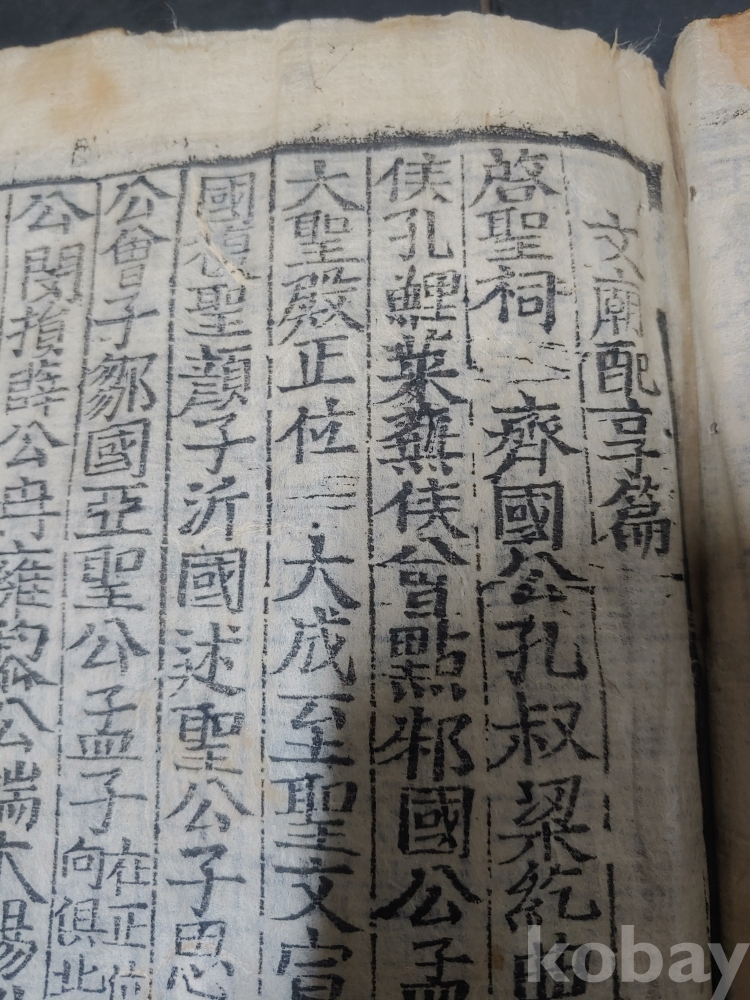 文廟配享篇
啓聖祠 齊國公孔叔梁紇曲
侯孔鯉萊蕪侯曾點邾國公孟
大聖殿正位 大成至聖文宣
國復聖顔子沂國述聖公子思
公曾子鄒國亞聖公孟子
在正位
向俱北
公閔損薛公冉雍公端木賜
kobay